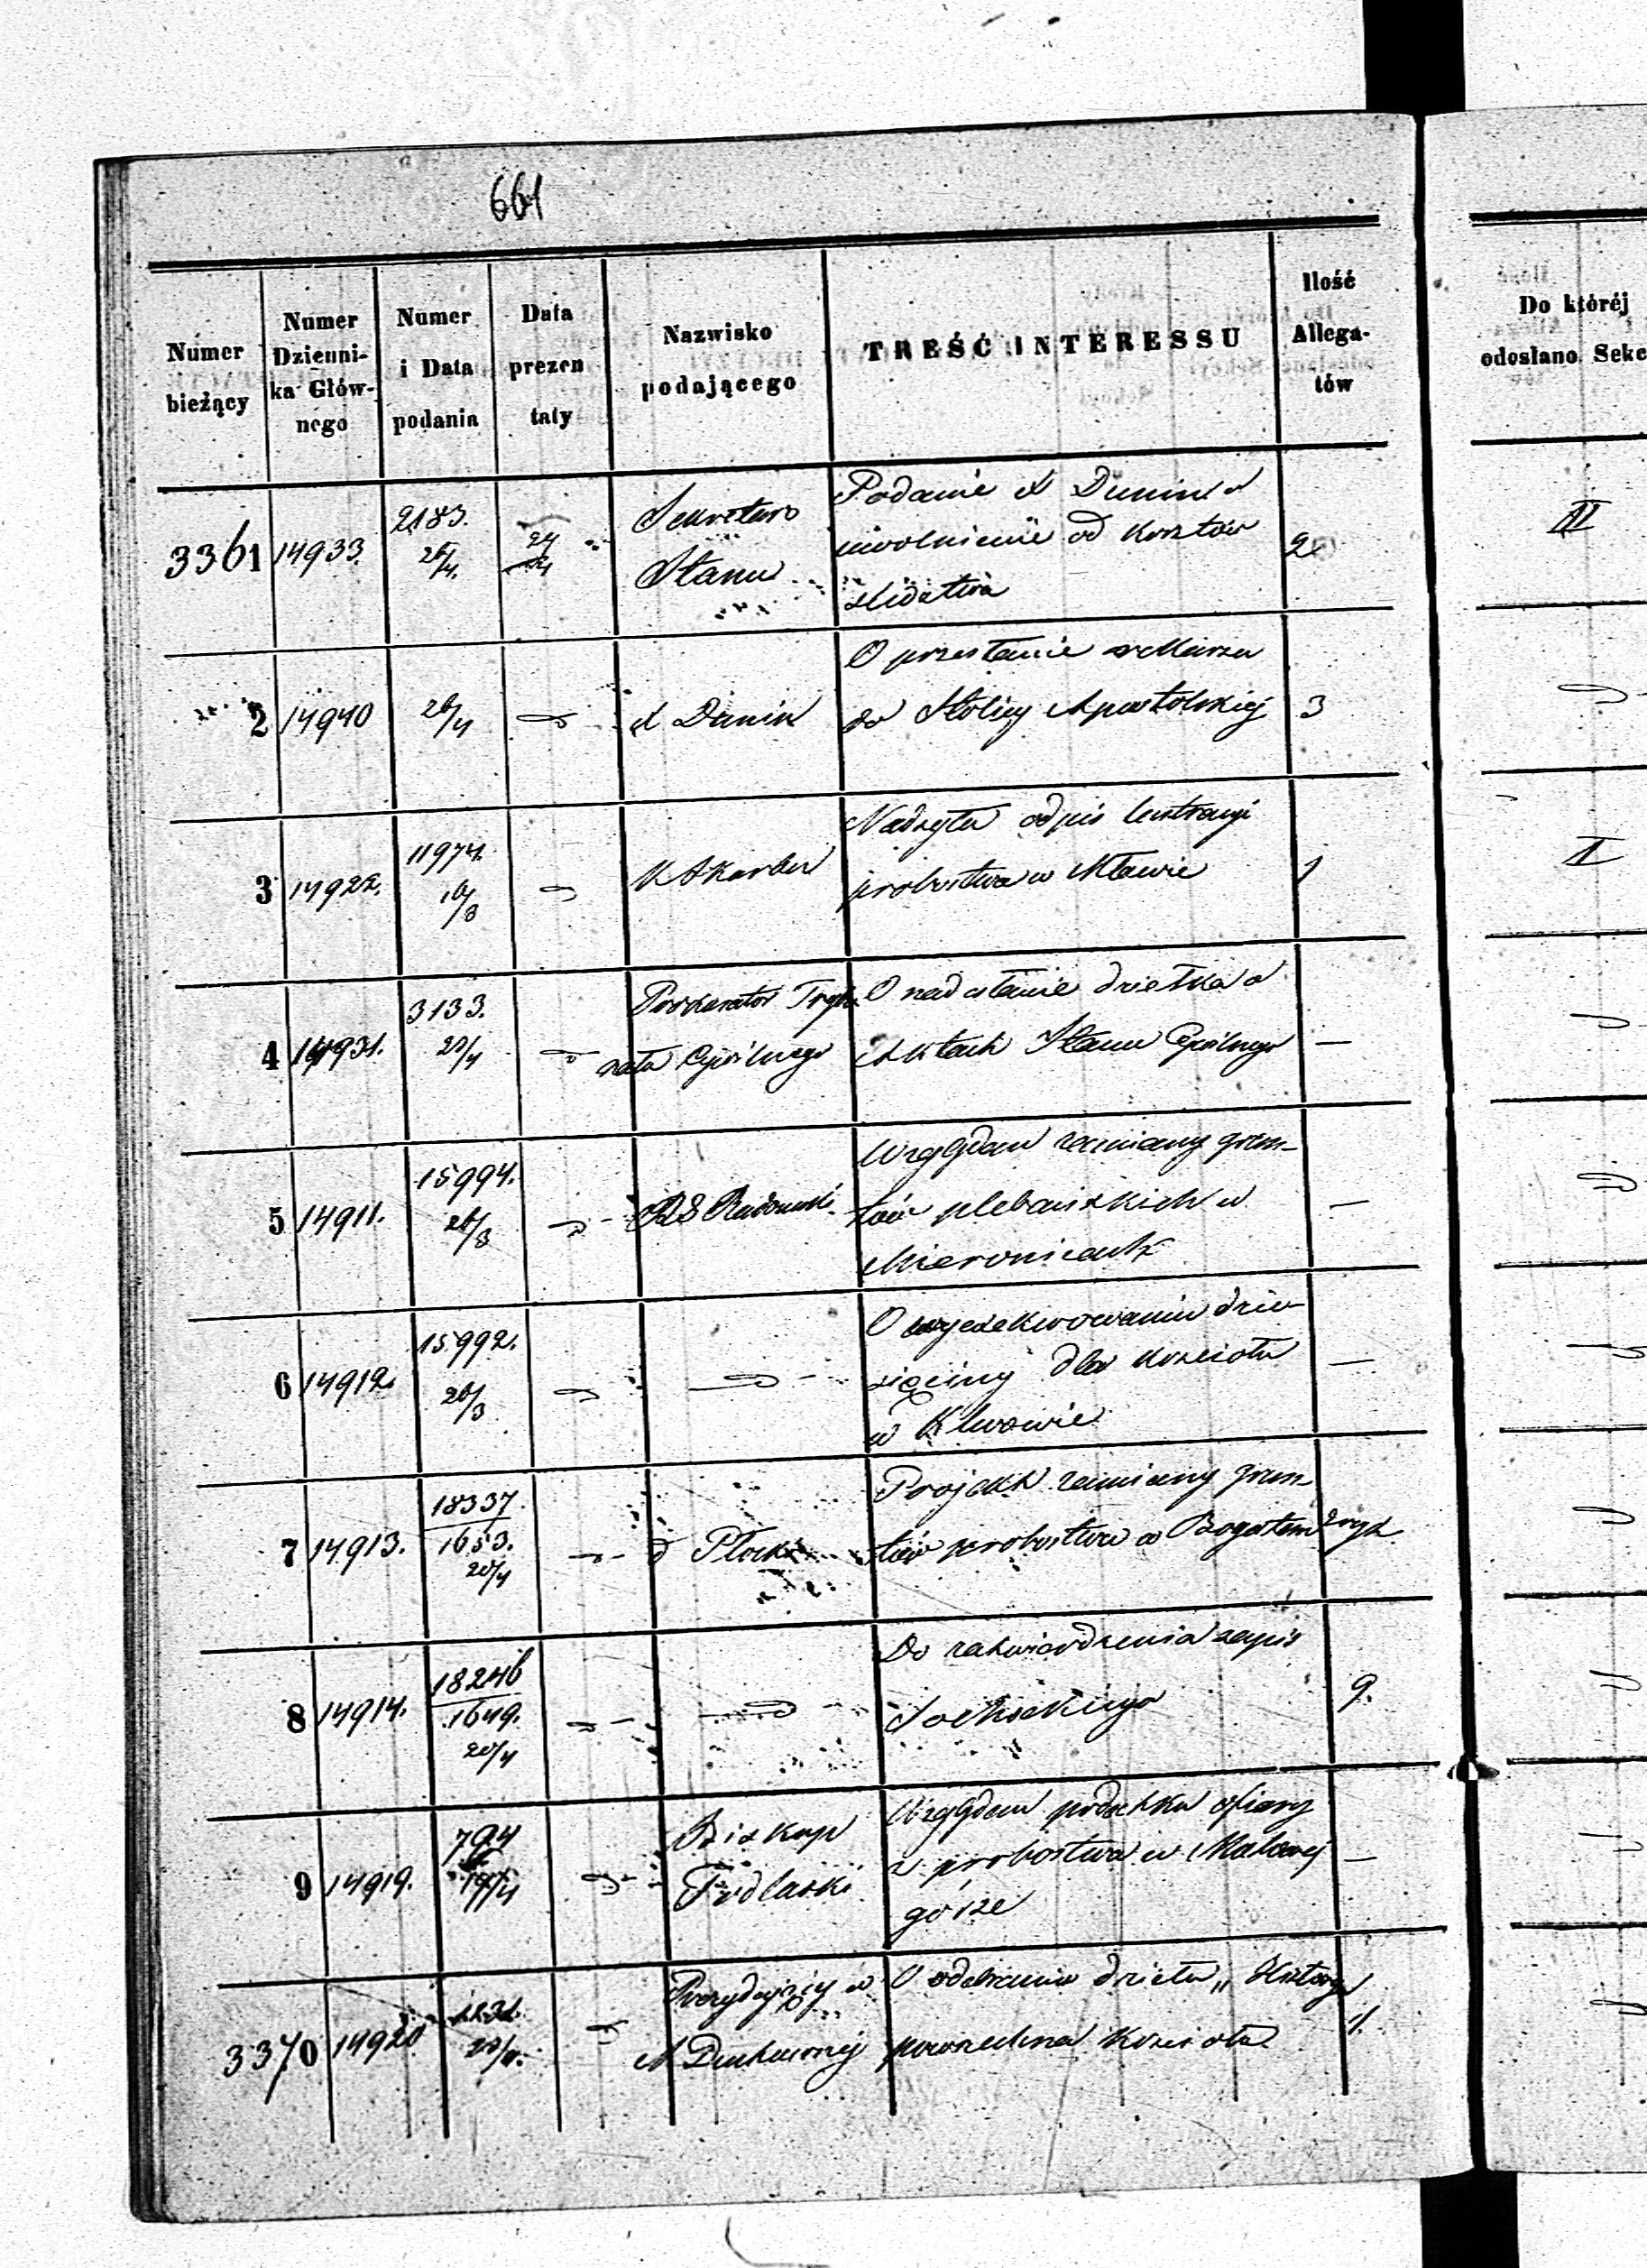 661
Numer bieżący
Numer Dzienni- ka Głów- nego
Numer i Data podania
Data prezen taty
Nazwisko podającego
TREŚĆ INTERESSU
Ilość Allega- tów
Do któréj odosłano Sekc
3361 14933. 2183. 26/4. 24/4 Sekretarz Stanu
Podanie X Dunin o
uwolnienie od kosztów
śledztwa
2
II
2 14940 26/4 X Dunin
O przesłanie
do Stolicy Apostolskiej
3
3 14922. 11974. 16/3 K Skarbu
Nadsyła odpis lustracyi
probostwa w Mławie
1
II
4 14931. 3133. 20/4 Prokurator Trybu
nału Cywilnego
O nadesłanie dziełka o
Aktach Stanu Cywilnego
—
5 14911. 15994. 26/3 RG Radomski
Względem zamiany grun-
tów plebańskich w
Mieronicach
—
6 14912. 15992. 26/3
O wyexekwowaniu dzie-
sięciny dla Kościoła
w Klwowie
—
7 14913. 18337. 1653. 20/4 d Płocki
Projekt zamiany grun
tów probostwa w Bogatem
8 14914. 18246 1649. 20/4
Do zatwierdzenia zapis
9.
9 14919. 794 19/4 Biskup
Podlaski
Względem podatku ofiary
z probostwa w Makowej
górze
—
3370 14920 20/4. Prezydujący w
A Duchownej
O odebraniu dzieła „Historya
powszechna Kościoła
1.